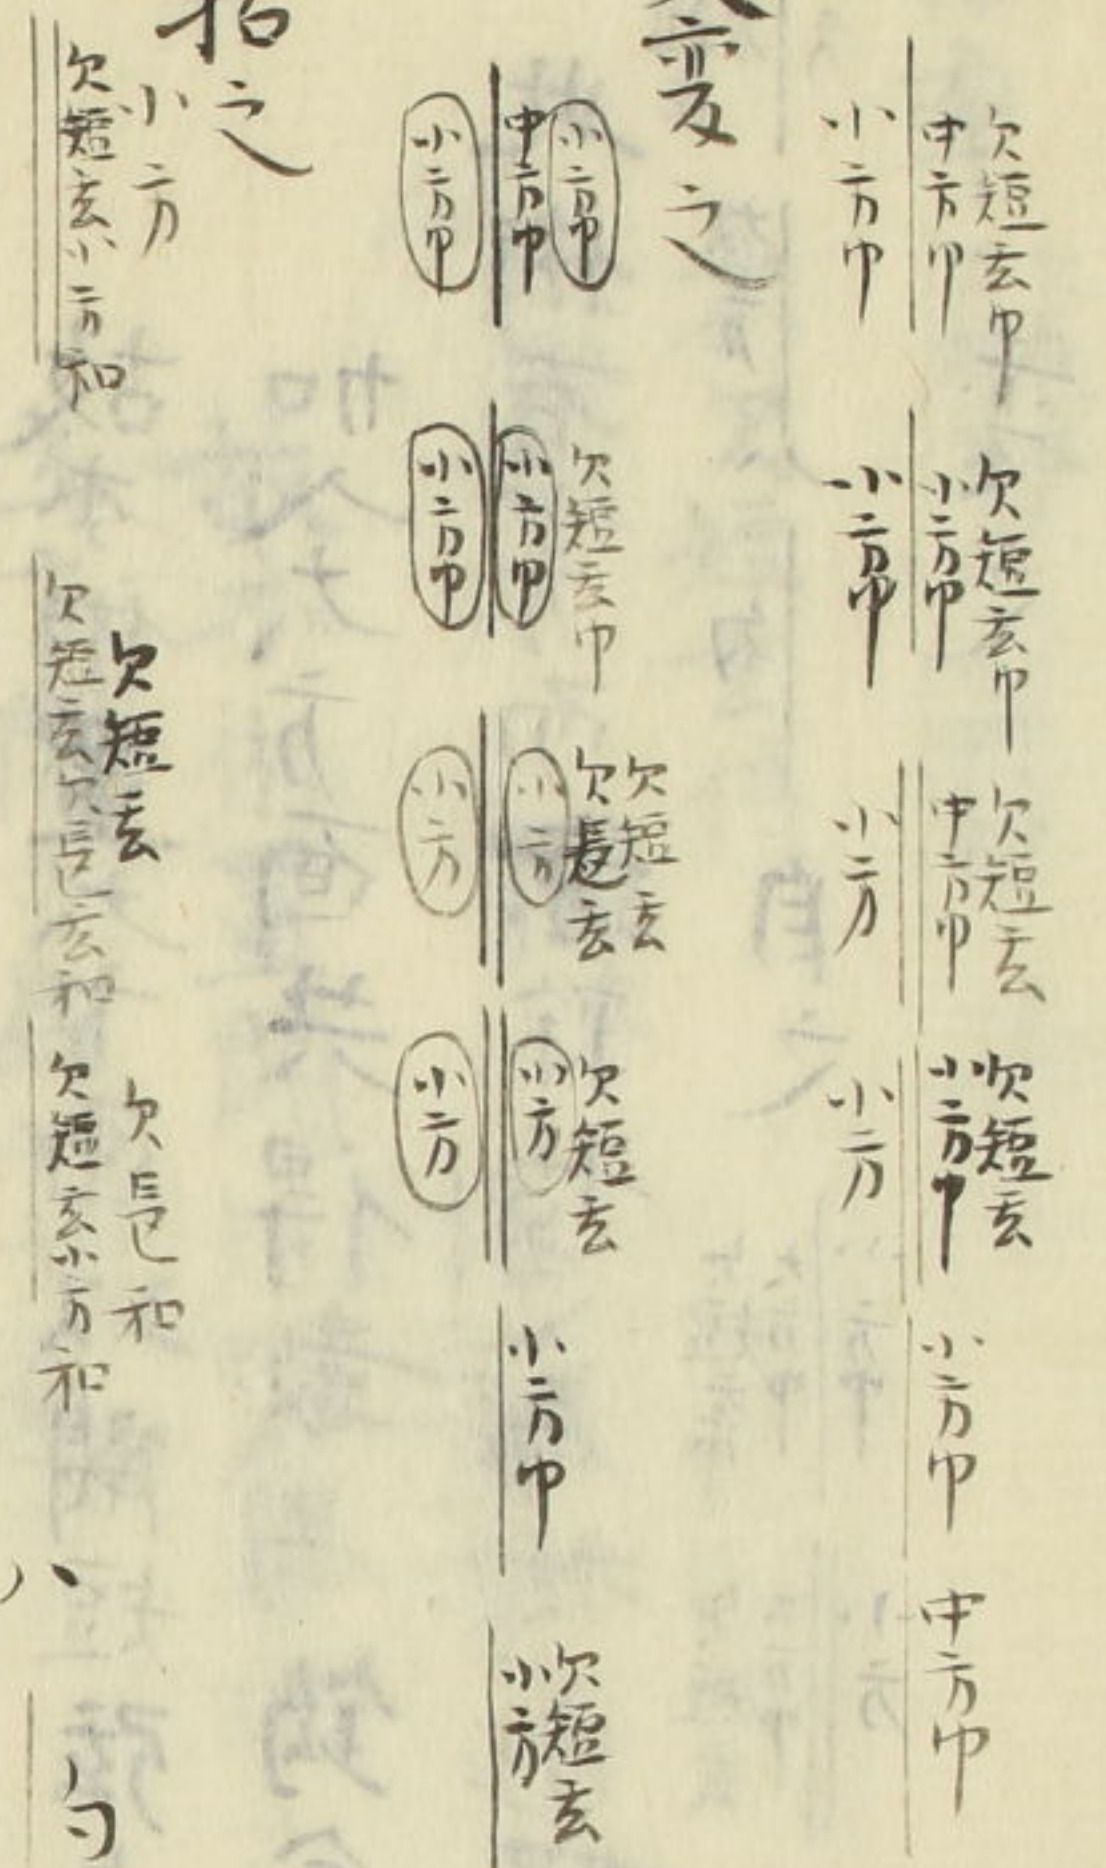 欠短玄巾
中方巾
小方巾
欠短玄巾
小方巾
小方巾
欠短玄
中方巾
小方
欠短玄
小方巾
小方
小方巾
中方巾
変之
小方巾
中方巾
小方巾
欠短玄巾
小方巾
小方巾
欠短玄
欠長玄
小方
小方
欠短玄
小方
小方
小方巾
欠短玄
小方
招之
小方
欠短玄小方和
欠短玄
欠短玄欠長玄和
欠長和
欠短玄小方和
八
勾